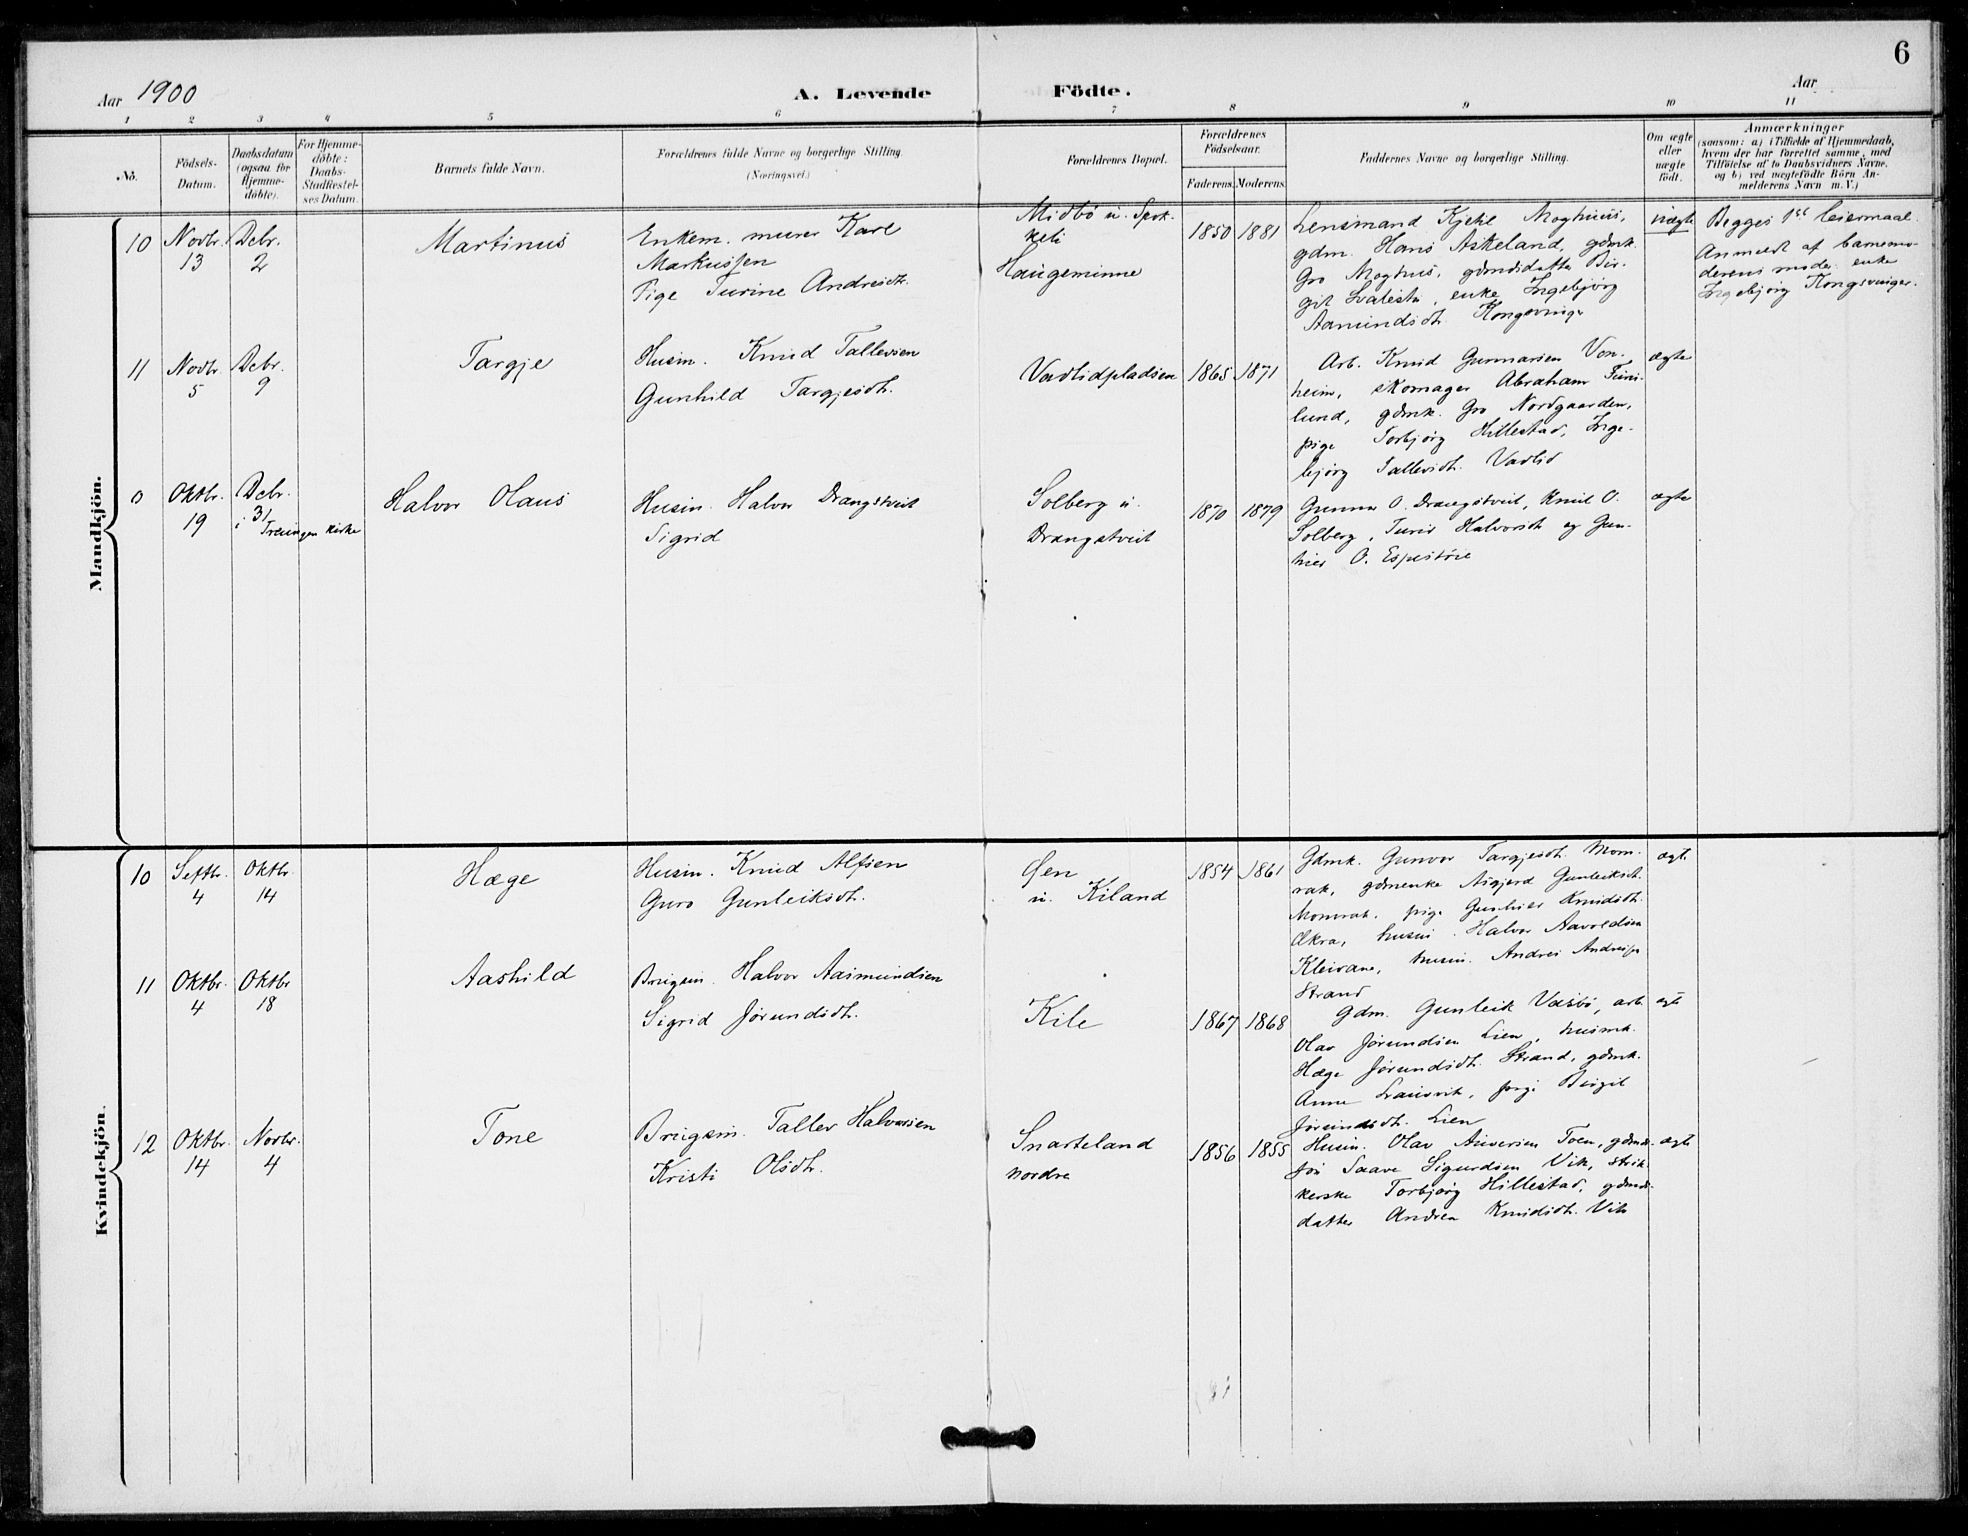 6
Aar 1900
A. Levende Födte.
Aar
1 2 3 4 5 6 7 8 9 10 11
No.
Födsels-
Datum.
Daabsdatum
(ogsaa for
Hjemme-
döbte).
For Hjemme-
döbte:
Daabs-
Stadfæstel-
ses Datum.
Barnets fulde Navn.
Forældrenes fulde Navne og borgerlige Stilling.
(Næringsvei.)
Forældrenes Bopæl.
Forældrenes
Födselsaar.
Faderens. Moderens.
Faddernes Navne og borgerlige Stilling.
Om ægte
eller
uægte
födt.
Anmærkninger
(saasom: a) i Tilfælde af Hjemmedaab,
hvem der har forrettet samme, med
Tilföielse af to Daabsvidners Navne,
og b) ved uægtefödte Börn An-
melderens Navn m. V.)
Mandkjön.
10
Novbr.
13
Dcbr.
2
Martinus
Enkem. murer Karl
Markussen
Pige Turine Andresdtr.
Midbø u. Spok-
keli
Haugeminne
1850 1881
Lensmand Kjetil Moghus,
gdm. Hans Askeland, gdmk.
Gro Moghus, gdmdsdatter Bir-
git, enke Ingebjørg
Aamundsdtr. Kongsvinger
uægte
Begges 1ste leiermaal
Anmeldt af barnemo-
derens moder enke
Ingebjørg Kongsvinger.
11
Novbr.
5
Dcbr.
9
Targje
Husm. Knud Tallevsen
Gunhild Targjesdtr.
Vadlidpladsen
1865 1871
Arb. Knud Gunnarsen Von-
heim, skomager Abraham
lund, gdmk. Gro Nordgaarden,
pige Torbjørg Hillestad, Inge-
bjørg Tallevsdtr. Vadlid
ægte
0
Oktbr.
19
Dcbr.
31
i Treungen kirke
Halvor Olaus
Husm. Halvor Drangstveit
Sigrid
Solberg u.
Drangstveit
1870 1879
Gunnar O. Drangstveit, Knut O.
Solberg, Turid Halvorsdtr og Gun-
hild O. Espestøie
ægte
Kvindekjön.
10
Septbr.
4
Oktbr.
14
Hæge
Husm. Knud Alfsen
Guro Gunleiksdtr.
Øen
u. Kiland
1854 1861
Gdmk. Gunvor Targjesdtr. Mom-
rak, gdmenke Asgjerd Gunleiksdtr.
Momrak, pige Gunhild Knudsdtr.
Ækra, husm. Halvor Aavoldsen
Kleivane, husm. Andres Andresen
Strand
ægte
11
Oktbr.
4
Oktbr
18
Aashild
Brugsm. Halvor Aasmundsen
Sigrid Jørundsdtr.
Kile
1867 1868
Gdm. Gunleik Vasbø, arb.
Olav Jørundsen Lien, husmk.
Hæge Jørundsdtr. Strand, gdmk.
Anne, pige Birgit
Jørundsdtr. Lien
ægte
12
Oktbr.
14
Novbr.
4
Tone
Brugsm. Tallev Halvorsen
Kristi Olsdtr.
Snarteland
nordre
1856 1855
Husm. Olav Aaversen Toen, gdmds-
søn Saave Sigurdsen Vik, strik-
kerske Torbjørg Hillestad, gdmds-
datter Andrea Knudsdtr. Vik
ægte